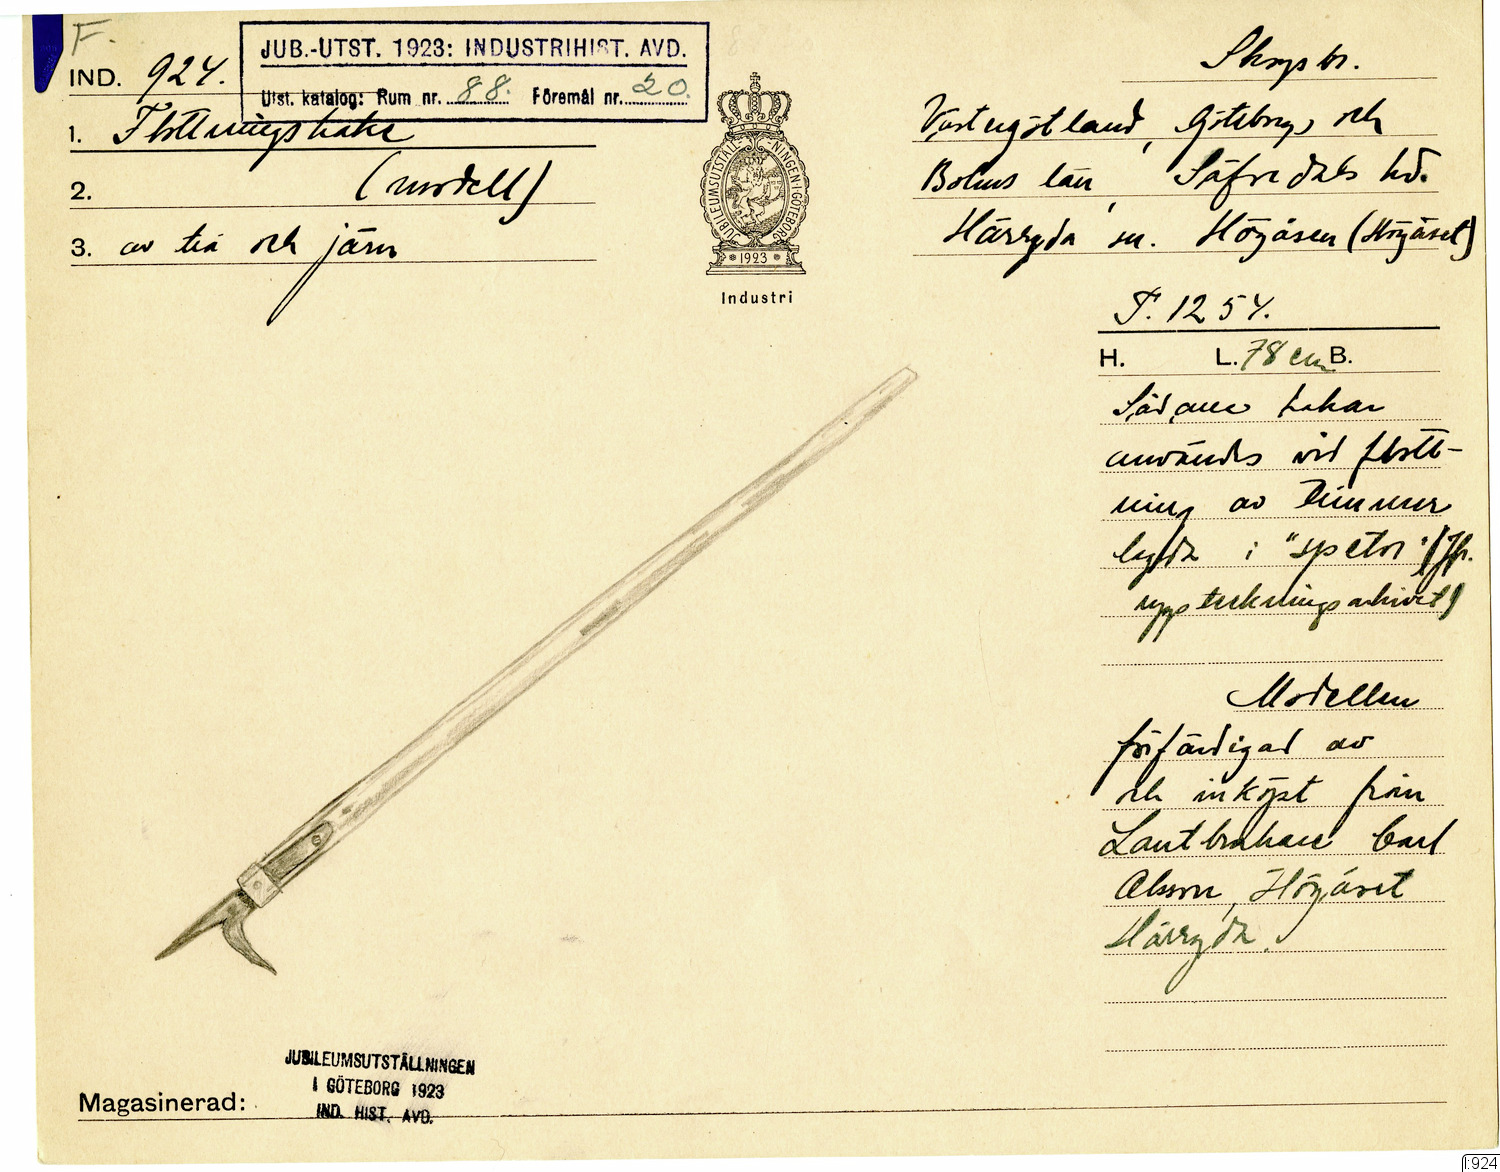 F.
IND. 924.
JUB.-UTST. 1923: INDUSTRIHIST. AVD.
Utst. katalog: Rum nr. 88. Föremål nr. 20.
1. Flottningshake
2. (modell)
3. av trä och järn
JUBILEUMSUTSTÄLL-NINGEN I GÖTEBORG
1923
Industri
Skogsbr.
Västergötland, Göteborgs och
Bohus län, Säfvedals hd.
Härryda sn. Högåsen (Högåset)
F. 1254.
H. L. 78 cm B.
Sådana hakar
användes vid flott-
ning av timmer
lagda i "spetor" (Jfr.
uppteckningsarkivet)
Modellen
förfärdigad av
och inköpt från
Lantbrukare Carl
Olsson, Högåset
Härryda.
JUBILEUMSUTSTÄLLNINGEN
I GÖTEBORG 1923
IND. HIST. AVD.
Magasinerad:
:924